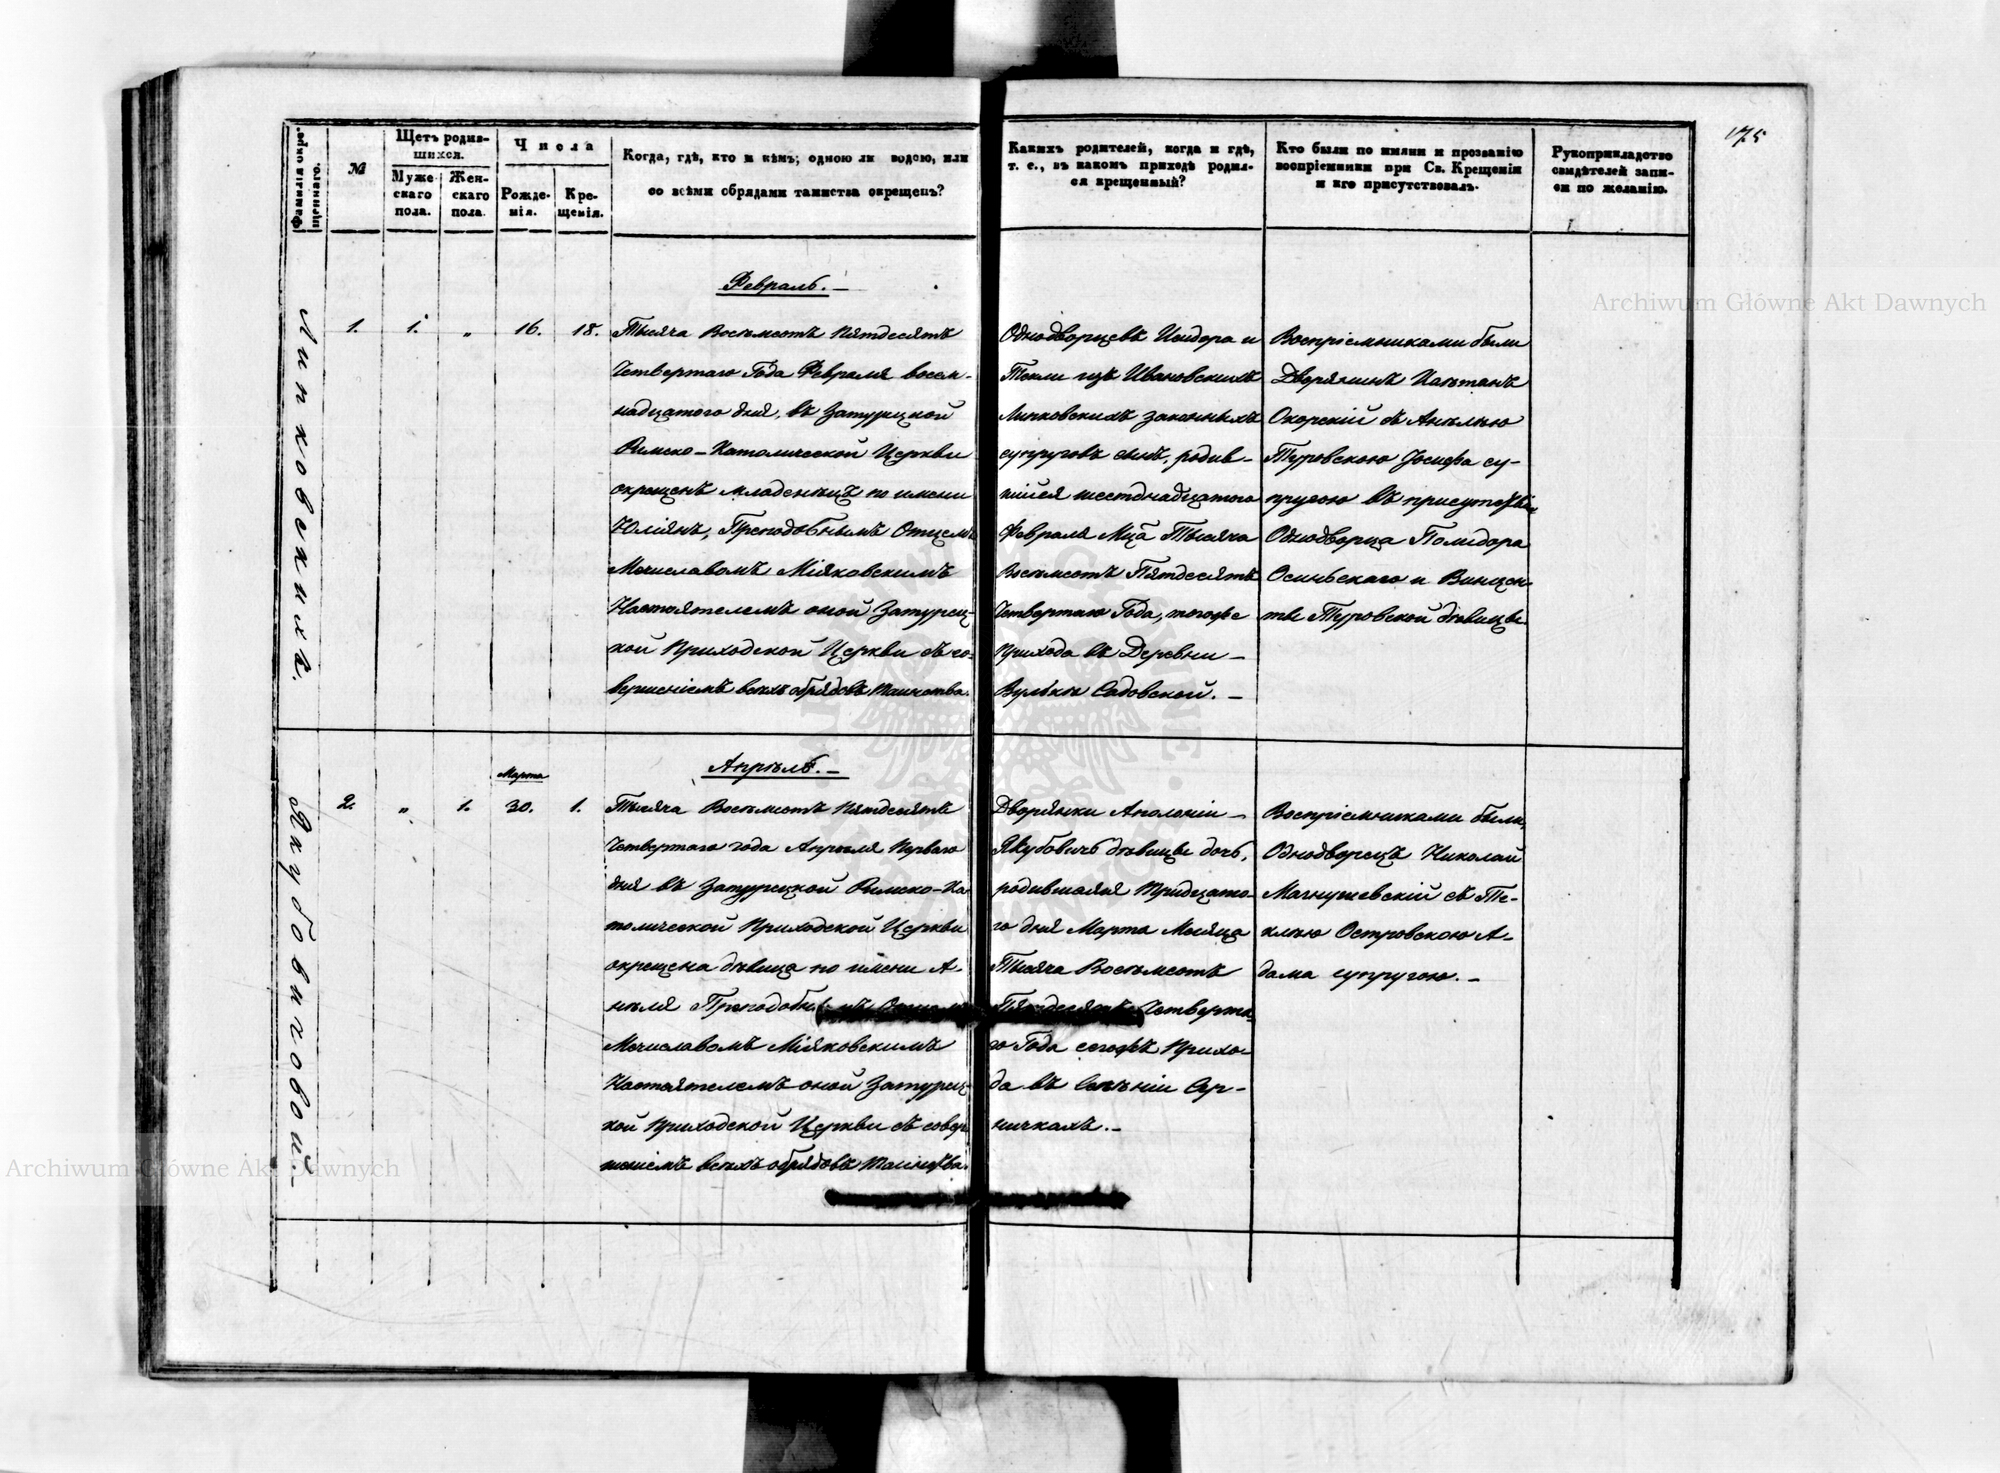 175
Archiwum Główne Akt Dawnych
Фамилія окре-
щеннаго.
№
Щетъ родив-
шихся.
Муже-
скаго
пола.
Жен-
скаго
пола.
Числа
Рожде-
нія.
Кре-
щенія.
Когда, гдѣ, кто и кѣмъ; одною ли водою, или
со всѣми обрядами таинства окрещенъ?
Какихъ родителей, когда и гдѣ,
т. е., въ какомъ приходѣ родил-
ся крещенный?
Кто были по имяни и прозванію
воспріемники при Св. Крещеніи
и кто присутствовалъ.
Рукоприкладство
свидѣтелей запи-
си по желанію.
Февраль.
Линковскихъ.
1. 1. „ 16. 18.
Тысяча Восемьсотъ Пятдесятъ
Четвертаго Года Февраля восем-
надцатого дня, въ Затурецкой
Римско-Католической Церкви
окрещенъ младенецъ по имени
Юліянъ, Преподобнымъ Отцемъ
Мечиславомъ Міяковскимъ
Настоятелемъ оной Затурец-
кой Приходской Церкви съ со-
вершеніемъ всѣхъ обрядовъ таинства.
Однодворцевъ Исидора и
Текли изъ Ивановскихъ
Линковскихъ законныхъ
супруговъ сынъ, родив-
шійся шестнадцатого
Февраля Мца Тысяча
Восемьсотъ Пятдесятъ
Четвертаго Года, тогоже
Прихода въ Деревни
Вулькѣ Садовской.
Воспріемниками были
Дворянинъ Каетанъ
Окорскій съ Анелею
Туровскою Іосифа су-
пругою въ присутствіи
Однодворца Полидора
Осиньскаго и Винцен-
ты Туровской дѣвицы.
Апрѣль.
Якубовичовой.
Марта
2. „ 1. 30. 1.
Тысяча Восемьсотъ Пятдесятъ
Четвертаго года Апрѣля Перваго
дня въ Затурецкой Римско-Ка-
толической Приходской Церкви
окрещена дѣвица по имени А-
нѣля Преподобнымъ Отцемъ
Мечиславомъ Міяковскимъ
Настоятелемъ оной Затурец-
кой Приходской Церкви съ совер-
шеніемъ всѣхъ обрядовъ таинства.
Дворянки Аполоніи
Якубовичъ дѣвицы дочь,
родившаяся тридцато-
го дня Марта Месяца
Тысяча Восемьсотъ
Пятдесятъ Четверта-
го Года сегожъ Прихо-
да въ Селеніи Сур-
ничкахъ.
Воспріемниками были
Однодворецъ Николай
Магнушевскій съ Те-
клею Островскою А-
дама супругою.
Archiwum Główne Akt Dawnych